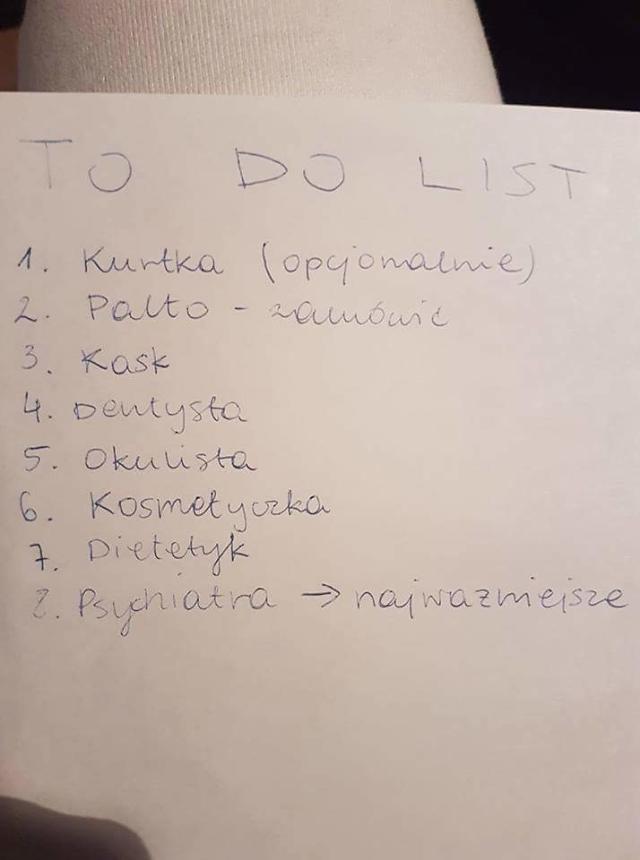 TO DO LIST
1. Kurtka (opcjonalnie)
2. Palto - zamówić
3. Kask
4. Dentysta
5. Okulista
6. Kosmetyczka
7. Dietetyk
8. Psychiatra → najważniejsze